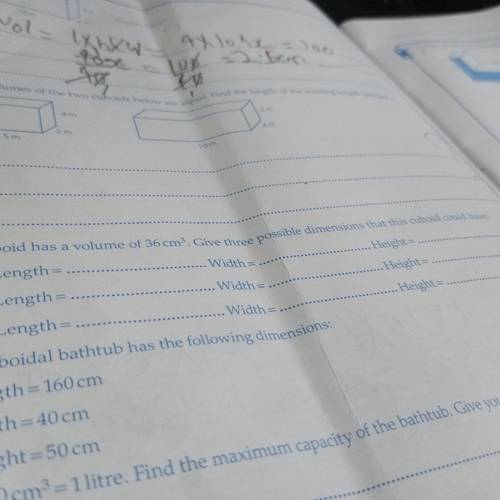 Vol = l x h x w = 4 x 10 x x = 100
= 2.5cm
lumes of the two cuboids below are equal. Find the length of the missing length
4 m
2 m
5 m
2 m
x m
10 m
boid has a volume of 36 cm³. Give three possible dimensions that this cuboid could have.
Length = Width = Height =
Length = Width = Height =
Length = Width = Height =
boidal bathtub has the following dimensions:
gth = 160 cm
th = 40 cm
ght = 50 cm
0 cm³ = 1 litre. Find the maximum capacity of the bathtub. Give you